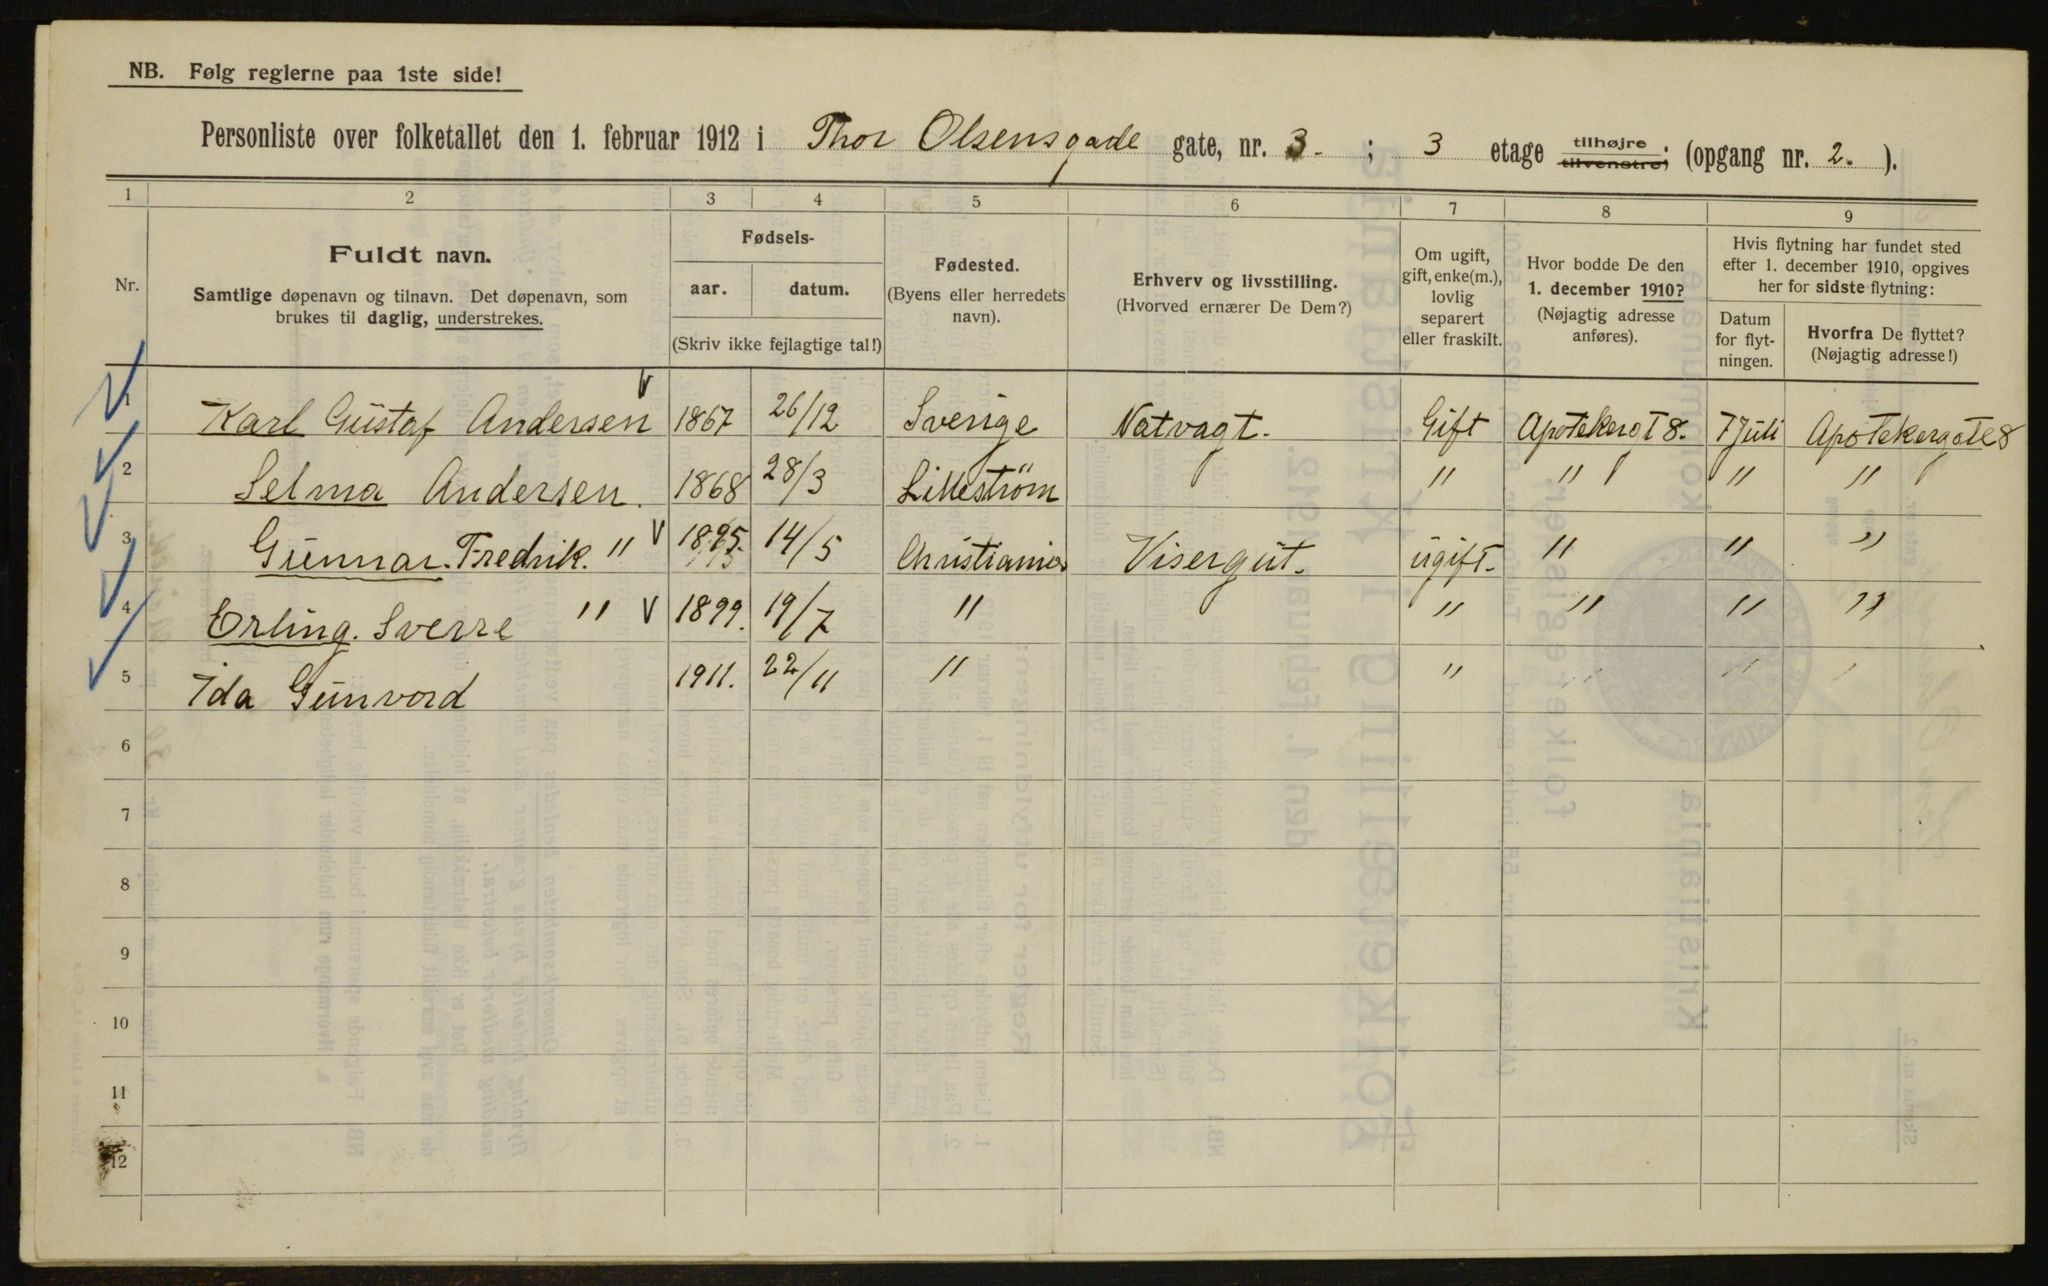 NB. Følg reglerne paa 1ste side!
Personliste over folketallet den 1. februar 1912 i Thor Olsensgade gate, nr. 3. ; 3 etage tilhøjre tilvenstre; (opgang nr. 2. ).
1 2 3 4 5 6 7 8 9
Nr.
Fuldt navn.
Samtlige døpenavn og tilnavn. Det døpenavn, som
brukes til daglig, understrekes.
Fødsels-
aar. datum.
(Skriv ikke fejlagtige tal!)
Fødested.
(Byens eller herredets
navn).
Erhverv og livsstilling.
(Hvorved ernærer De Dem?)
Om ugift,
gift, enke(m.),
lovlig
separert
eller fraskilt.
Hvor bodde De den
1. december 1910?
(Nøjagtig adresse
anføres).
Hvis flytning har fundet sted
efter 1. december 1910, opgives
her for sidste flytning:
Datum
for flyt-
ningen.
Hvorfra De flyttet?
(Nøjagtig adresse!)
1 Karl Gustaf Andersen 1867 26/12 Sverige Natvagt. Gift Apotekergt 8. 7 Juli Apotekergate 8
2 Selma Andersen. 1868 28/3 Lilleström " " " "
3 Gunnar. Fredrik. " 1895. 14/5 Christiania Visergut. ugift. " " "
4 Erling. Sverre " 1899. 19/7 " " " " "
5 Ida Gunvord 1911. 22/11 " " " " "
6
7
8
9
10
11
12